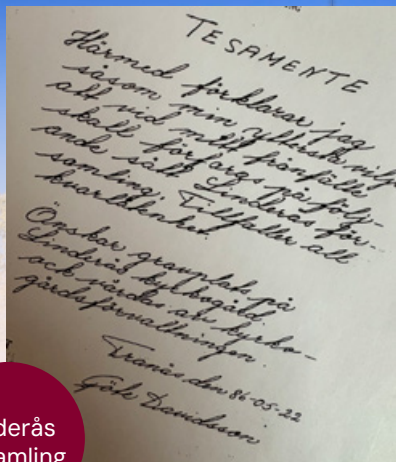 TESAMENTE
Härmed förklarar jag
såsom min yttersta vilja
att vid mitt frånfälle
skall förfargs på följ-
ande sätt Linderås för-
samling. Tillfaller all
kvarlåtenhet.
Önskar gravplats på
Linderås kyrkogård
och vårdas av kyrko-
gårdsförvaltningen.
Tranås den 86-05-22
Göte Davidsson
derås
amling